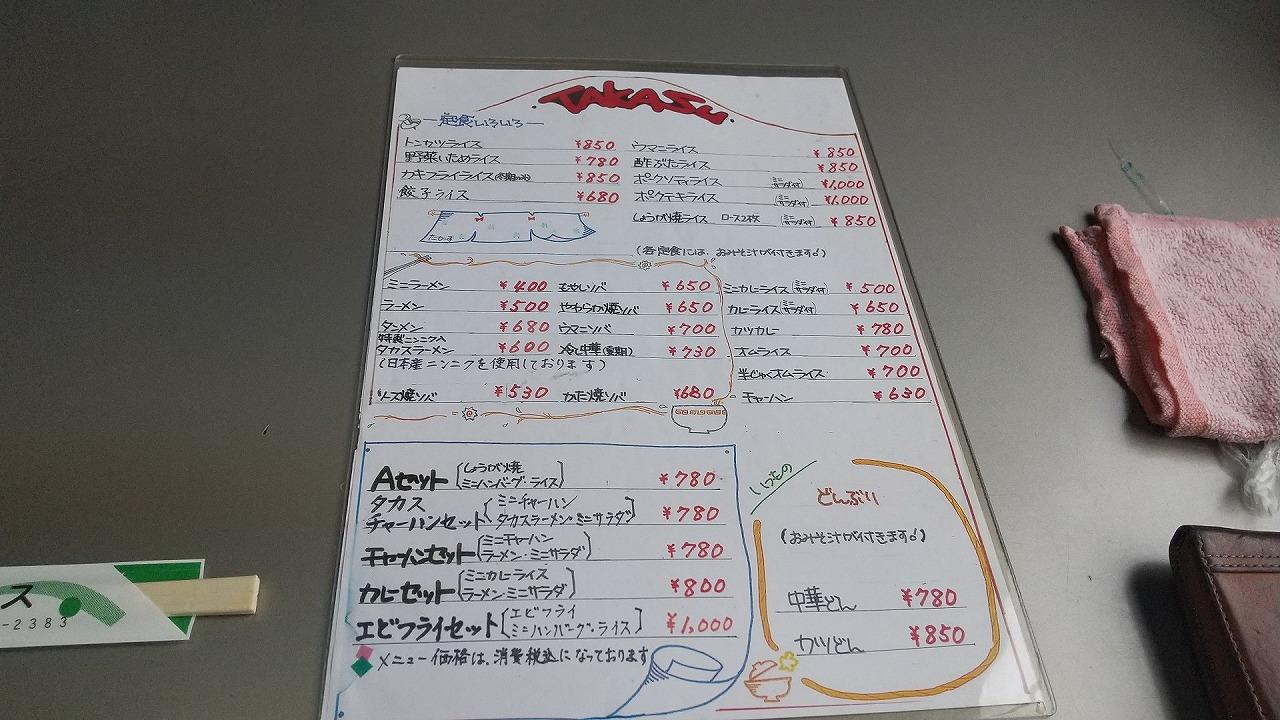 TAKASu
定食いろいろ
トンカツライス ¥850
野菜いためライス ¥780
カキフライライス ¥850
餃子ライス ¥680
ウマニライス ¥850
酢ぶたライス ¥850
ポークソティライス (ミニサラダ付) ¥1,000
ポークテキライス (ミニサラダ付) ¥1,000
しょうが焼ライス ロース2枚 (ミニサラダ付) ¥850
(各定食には、おみそ汁が付きます♪)
ミニラーメン ¥400
ラーメン ¥500
タンメン ¥680
特製ニンニク入
タカスラーメン ¥600
(日本産ニンニクを使用しております)
ソース焼ソバ ¥530
もやしソバ ¥650
やわらか焼ソバ ¥650
ウマニソバ ¥700
冷し中華(夏期) ¥730
かた焼ソバ ¥680
ミニカレーライス (ミニサラダ付) ¥500
カレーライス (ミニサラダ付) ¥650
カツカレー ¥780
オムライス ¥700
半じゃくオムライス ¥700
チャーハン ¥630
Aセット (しょうが焼 ミニハンバーグ・ライス) ¥780
タカス
チャーハンセット (ミニチャーハン タカスラーメン・ミニサラダ) ¥780
チャーハンセット (ミニチャーハン ラーメン・ミニサラダ) ¥780
カレーセット (ミニカレーライス ラーメン・ミニサラダ) ¥800
エビフライセット (エビフライ ミニハンバーグ・ライス) ¥1,000
メニュー価格は、消費税込になっております
いつもの
どんぶり
(おみそ汁が付きます♪)
中華どん ¥780
カツどん ¥850
ス
-2383